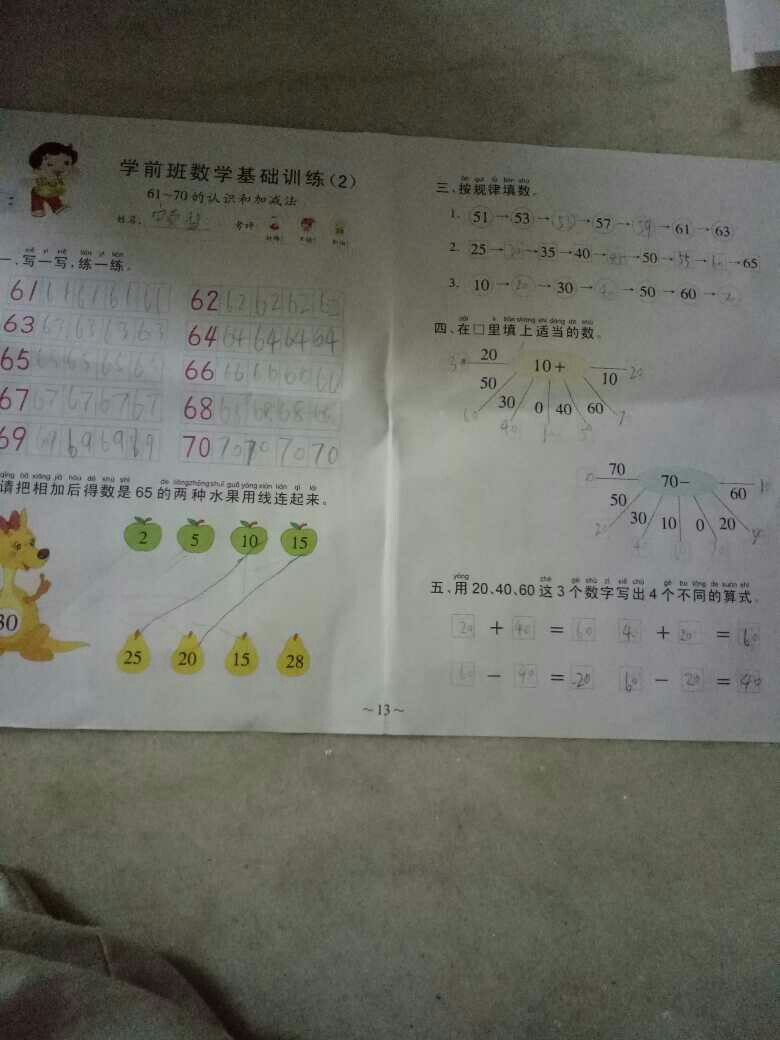 学前班数学基础训练(2)
61~70的认识和加减法
姓名:
考评:
一、写一写,练一练。
61 61 61 61 61 62 62 62 62 62
63 63 63 63 63 64 64 64 64 64
65 65 65 65 65 66 66 66 66 66
67 67 67 67 67 68 68 68 68 68
69 69 69 69 69 70 70 70 70 70
qǐng bǎ xiāng jiā hòu dé shù shì de liǎng zhǒng shuǐ guǒ yòng xiàn lián qǐ lái
请把相加后得数是65的两种水果用线连起来。
2 5 10 15
30
25 20 15 28
~13~
三、按规律填数。
1. 51→53→55→57→59→61→63
2. 25→30→35→40→45→50→55→60→65
3. 10→20→30→40→50→60→70
四、在□里填上适当的数。
10+
30 20 10 20
60 50 30 0 40 60 70
40 50
70-
70 60 10
50 30 10 0 20
20 40
yòng zhè gè shù zì xiě chū gè bù tóng de suàn shì
五、用20、40、60这3个数字写出4个不同的算式。
20 + 40 = 60 40 + 20 = 60
60 - 40 = 20 60 - 20 = 40